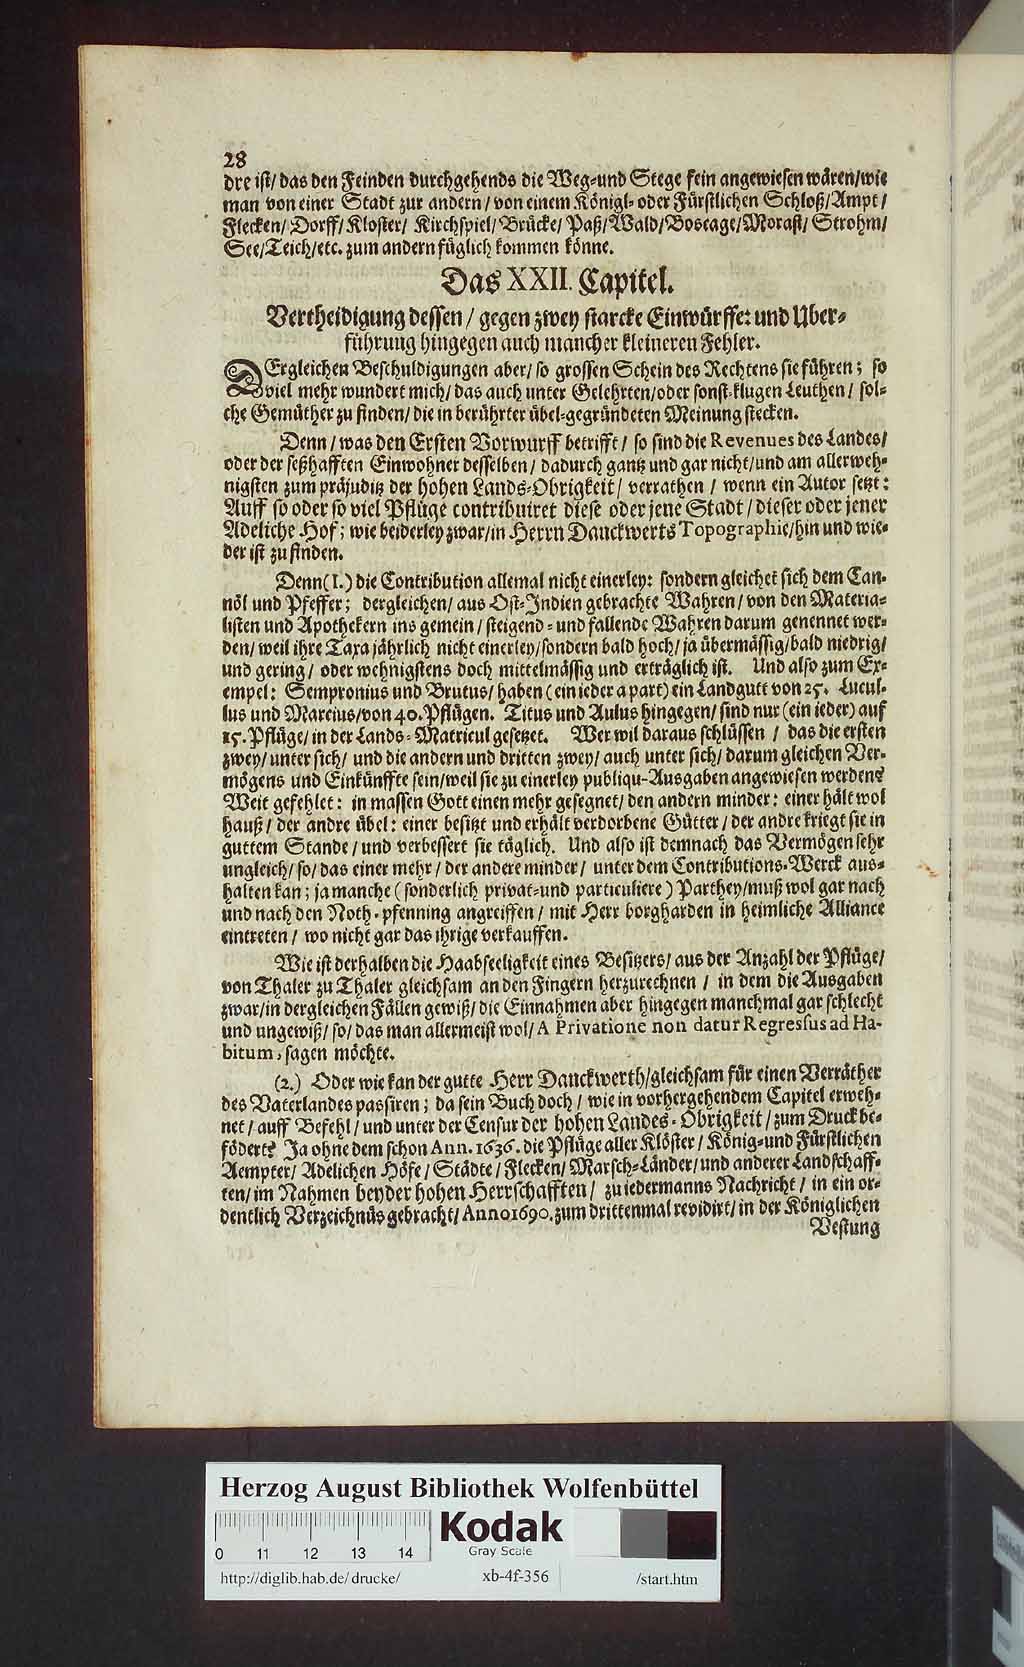 28
dre ist/ das den Feinden durchgehends die Weg-und Stege fein angewiesen wären/wie
man von einer Stadt zur andern/ von einem Königl- oder Fürstlichen Schloß/Ampt/
Flecken/ Dorff/ Kloster/ Kirchspiel/ Brücke/ Paß/Wald/Boscage/Morast/ Strohm/
See/Teich/etc. zum andern füglich kommen könne.
Das XXII. Capitel.
Vertheidigung dessen/ gegen zwey starcke Einwürffe: und Uber-
führung hingegen auch mancher kleineren Fehler.
DErgleichen Beschuldigungen aber/ so grossen Schein des Rechtens sie führen; so
viel mehr wundert mich/ das auch unter Gelehrten/oder sonst-klugen Leuthen/ sol-
che Gemüther zu finden/ die in berührter übel-gegründeten Meinung stecken.
Denn/ was den Ersten Vorwurff betrifft/ so sind die Revenues des Landes/
oder der seßhafften Einwohner desselben/ dadurch gantz und gar nicht/und am allerweh-
nigsten zum präjuditz der hohen Lands-Obrigkeit/ verrathen/ wenn ein Autor setzt:
Auff so oder so viel Pflüge contribuiret diese oder jene Stadt/ dieser oder jener
Adeliche Hof; wie beiderley zwar/in Herrn Danckwerts Topographie/hin und wie-
der ist zu finden.
Denn(1.) die Contribution allemal nicht einerley: sondern gleichet sich dem Can-
nöl und Pfeffer; dergleichen/ aus Ost-Indien gebrachte Wahren/ von den Materia-
listen und Apothekern ins gemein/ steigend- und fallende Wahren darum genennet wer-
den/ weil ihre Taxa jährlich nicht einerley/sondern bald hoch/ ja übermässig/bald niedrig/
und gering/ oder wehnigstens doch mittelmässig und erträglich ist. Und also zum Ex-
empel: Sempronius und Brutus/ haben (ein ieder a part) ein Landgutt von 25. Lucul-
lus und Marcius/von 40. Pflügen. Titus und Aulus hingegen/ sind nur (ein ieder) auf
15. Pflüge/ in der Lands-Matricul gesetzet. Wer wil daraus schlüssen/ das die ersten
zwey/ unter sich/ und die andern und dritten zwey/ auch unter sich/ darum gleichen Ver-
mögens und Einkünffte sein/weil sie zu einerley publiqu-Ausgaben angewiesen werden?
Weit gefehlet: in massen Gott einen mehr gesegnet/ den andern minder: einer hält wol
hauß/ der andre übel: einer besitzt und erhält verdorbene Gütter/ der andre kriegt sie in
guttem Stande/ und verbessert sie täglich. Und also ist demnach das Vermögen sehr
ungleich/ so/ das einer mehr/ der andere minder/ unter dem Contributions-Werck aus-
halten kan; ja manche (sonderlich privat-und particuliere) Parthey/muß wol gar nach
und nach den Noth-pfenning angreiffen/ mit Herr borgharden in heimliche Alliance
eintreten/ wo nicht gar das ihrige verkauffen.
Wie ist derhalben die Haabseeligkeit eines Besitzers/ aus der Anzahl der Pflüge/
von Thaler zu Thaler gleichsam an den Fingern herzurechnen/ in dem die Ausgaben
zwar/in dergleichen Fällen gewiß/ die Einnahmen aber hingegen manchmal gar schlecht
und ungewiß/ so/ das man allermeist wol/ A Privatione non datur Regressus ad Ha-
bitum, sagen möchte.
(2.) Oder wie kan der gutte Herr Danckwerth/gleichsam für einen Verräther
des Vaterlandes passiren; da sein Buch doch/ wie in vorhergehendem Capitel erweh-
net/ auff Befehl/ und unter der Censur der hohen Landes-Obrigkeit/ zum Druck be-
födert? Ja ohne dem schon Ann. 1636. die Pflüge aller Klöster/ König-und Fürstlichen
Aempter/ Adelichen Höfe/ Städte/ Flecken/ Marsch-Länder/und anderer Landschaff-
ten/ im Nahmen beyder hohen Herrschafften/ zu iedermanns Nachricht/ in ein or-
dentlich Verzeichnüs gebracht/ Anno 1690. zum drittenmal revidirt/ in der Königlichen
Vestung
Herzog August Bibliothek Wolfenbüttel
0 11 12 13 14
Kodak
Gray Scale
http://diglib.hab.de/drucke/ xb-4f-356 /start.htm